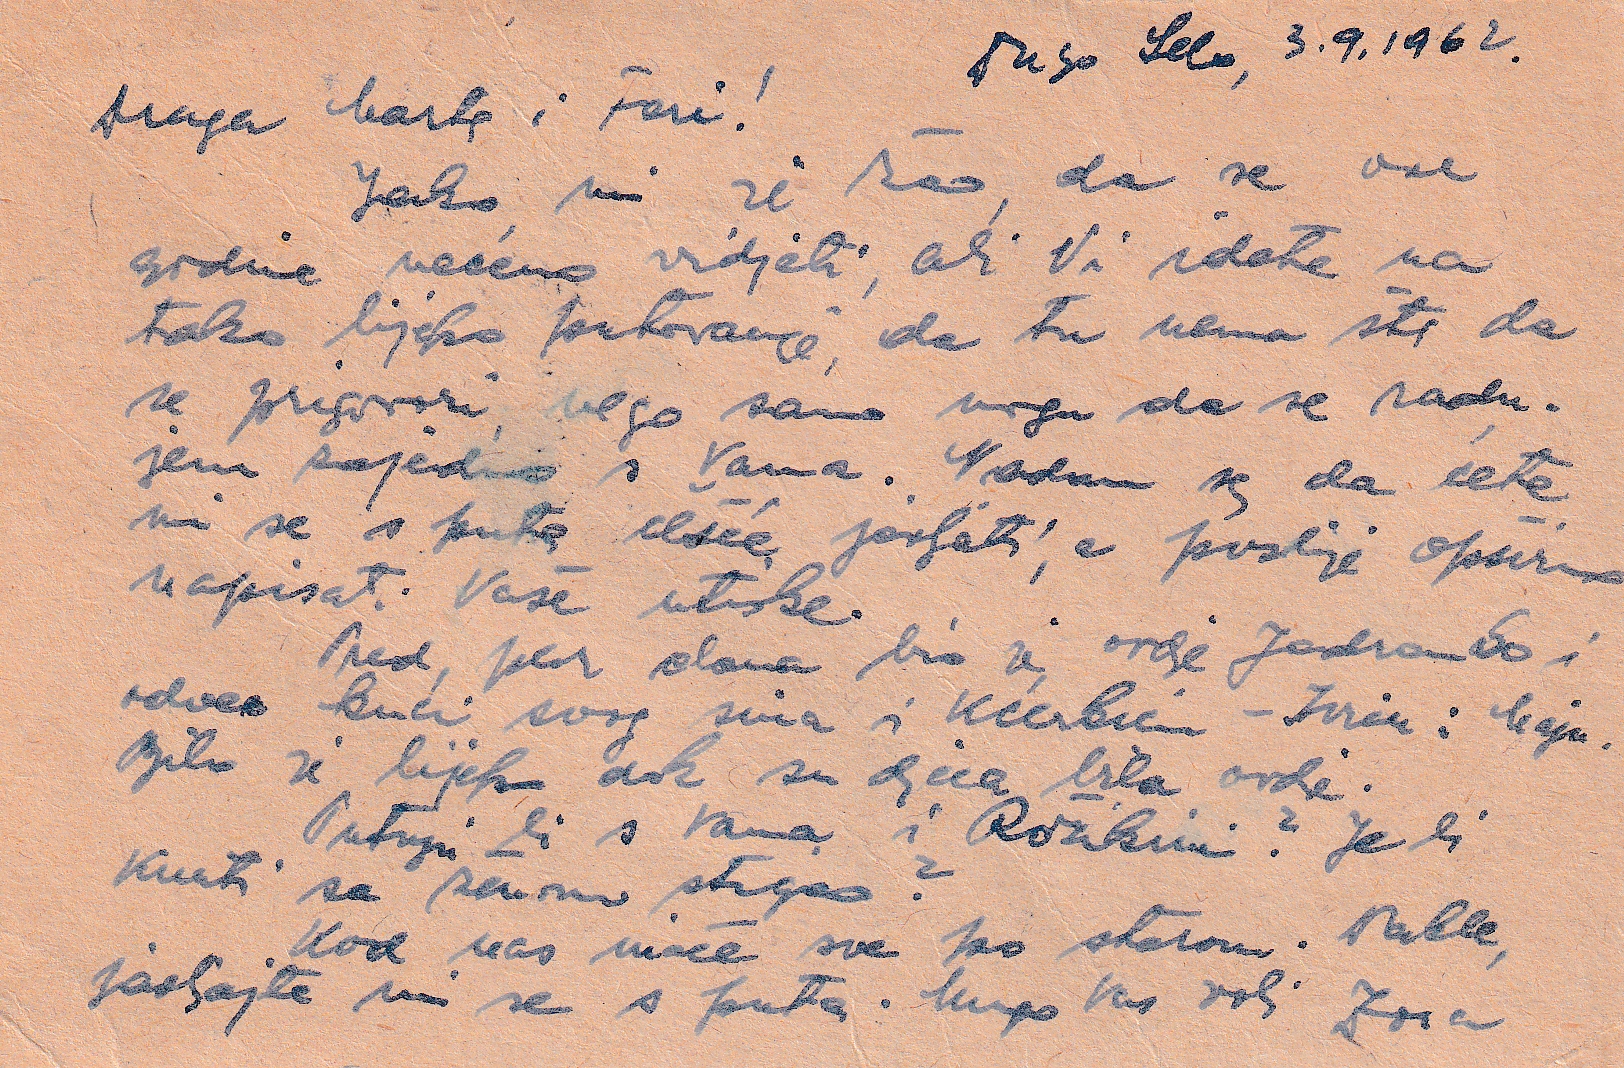 Dugo Selo, 3.9.1962.
Draga Marta i Fari!
Jako mi je žao, da se ove
godine nećemo vidjeti, ali Vi idete na
tako lijepo putovanje, da tu nema šta da
se prigovori, nego samo mogu da se radu-
jem zajedno s Vama. Nadam se da ćete
mi se s puta češće javljati, a poslije opširno
napisati Vaše utiske.
Pred par dana bio je ovdje Jadranko i
odveo kući svog sina i kćerkicu - Ivicu i Maju.
Bilo je lijepo dok su djeca bila ovdje.
Putuju li s Vama i Rožikini? Je li
sa ženom stigao?
Kod nas inače sve po starom. Dakle,
javljajte mi se s puta. Mnogo Vas voli Zora